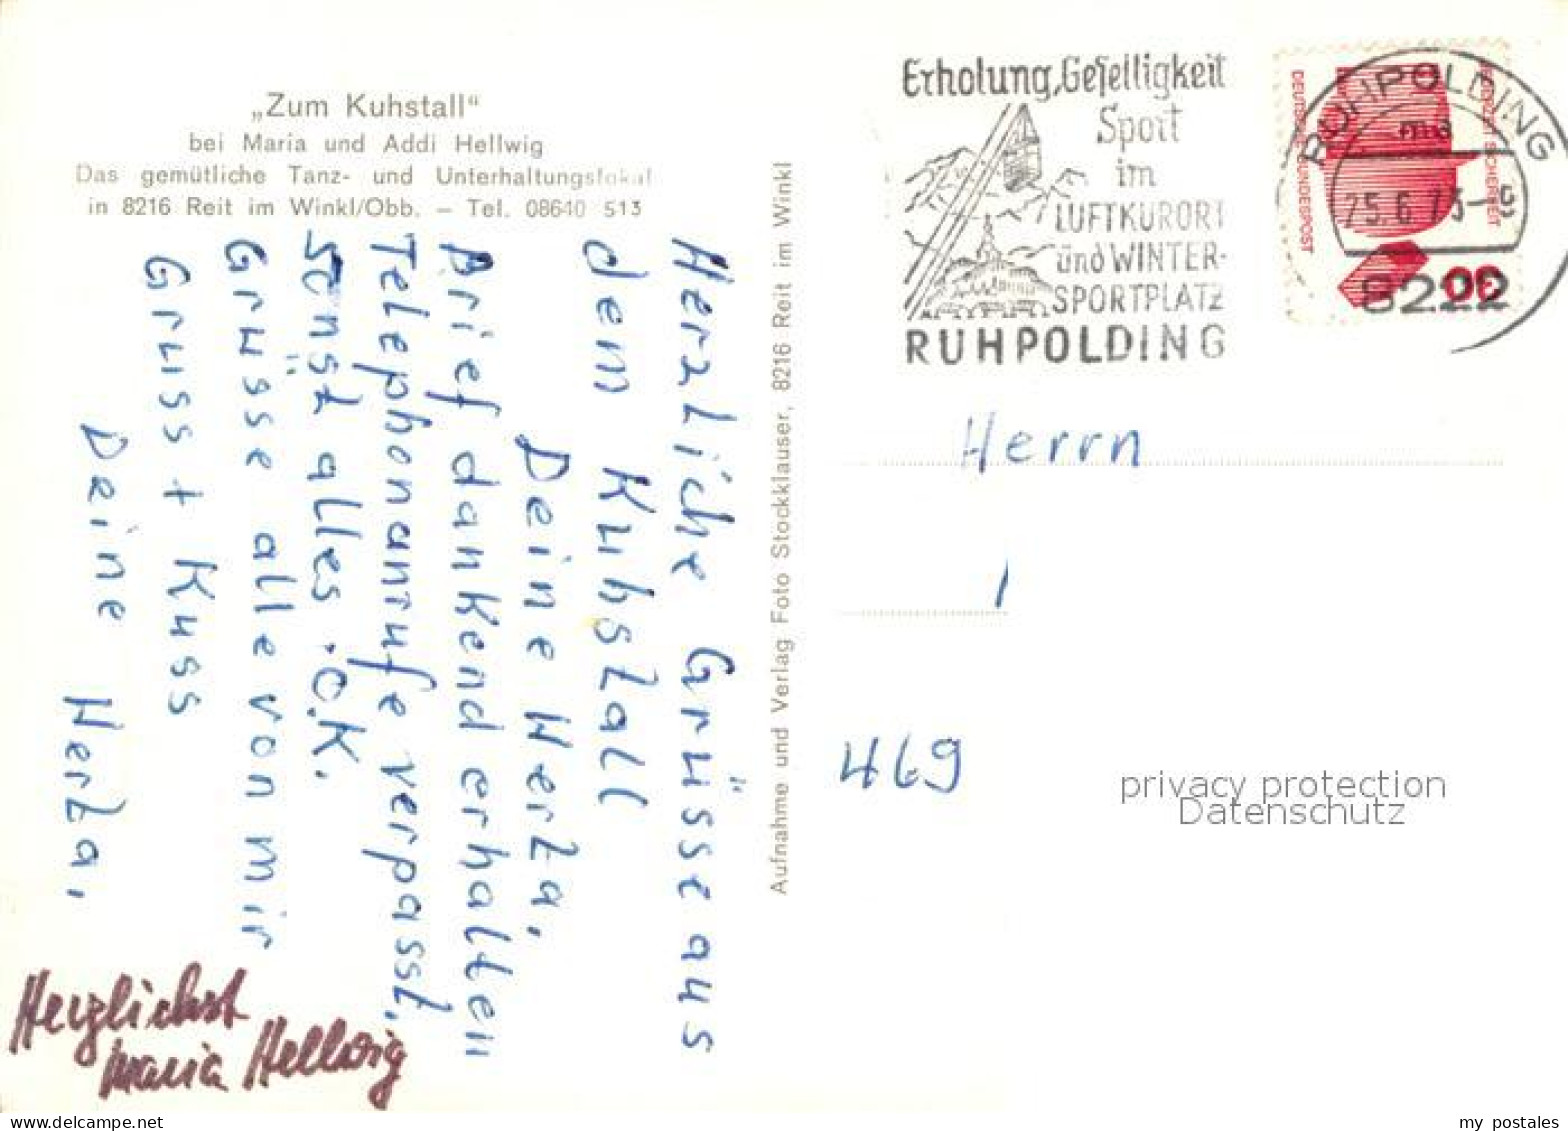 „Zum Kuhstall“
bei Maria und Addi Hellwig
Das gemütliche Tanz- und Unterhaltungslokal
in 8216 Reit im Winkl/Obb. – Tel. 08640 513
Herzliche Grüsse aus
dem Kuhstall
Deine Herta,
Brief dankend erhalten
Telephonanrufe verpasst,
sonst alles O.K.
Grüsse alle von mir
Gruss + Kuss
Deine Herta,
Herzlichst
Maria Hellwig
Aufnahme und Verlag Foto Stockklauser, 8216 Reit im Winkl
Erholung, Geselligkeit
Sport
im
LUFTKURORT
und WINTER-
SPORTPLATZ
RUHPOLDING
RUHPOLDING
ma
25.6.73
8222
DEUTSCHE BUNDESPOST
30
Herrn
469
privacy protection
Datenschutz
my postales